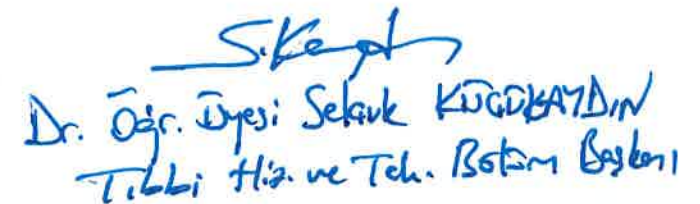 Dr. Öğr. Üyesi Selçuk KÜÇÜKAYDIN
Tıbbi Hiz. ve Tek. Bölüm Başkanı